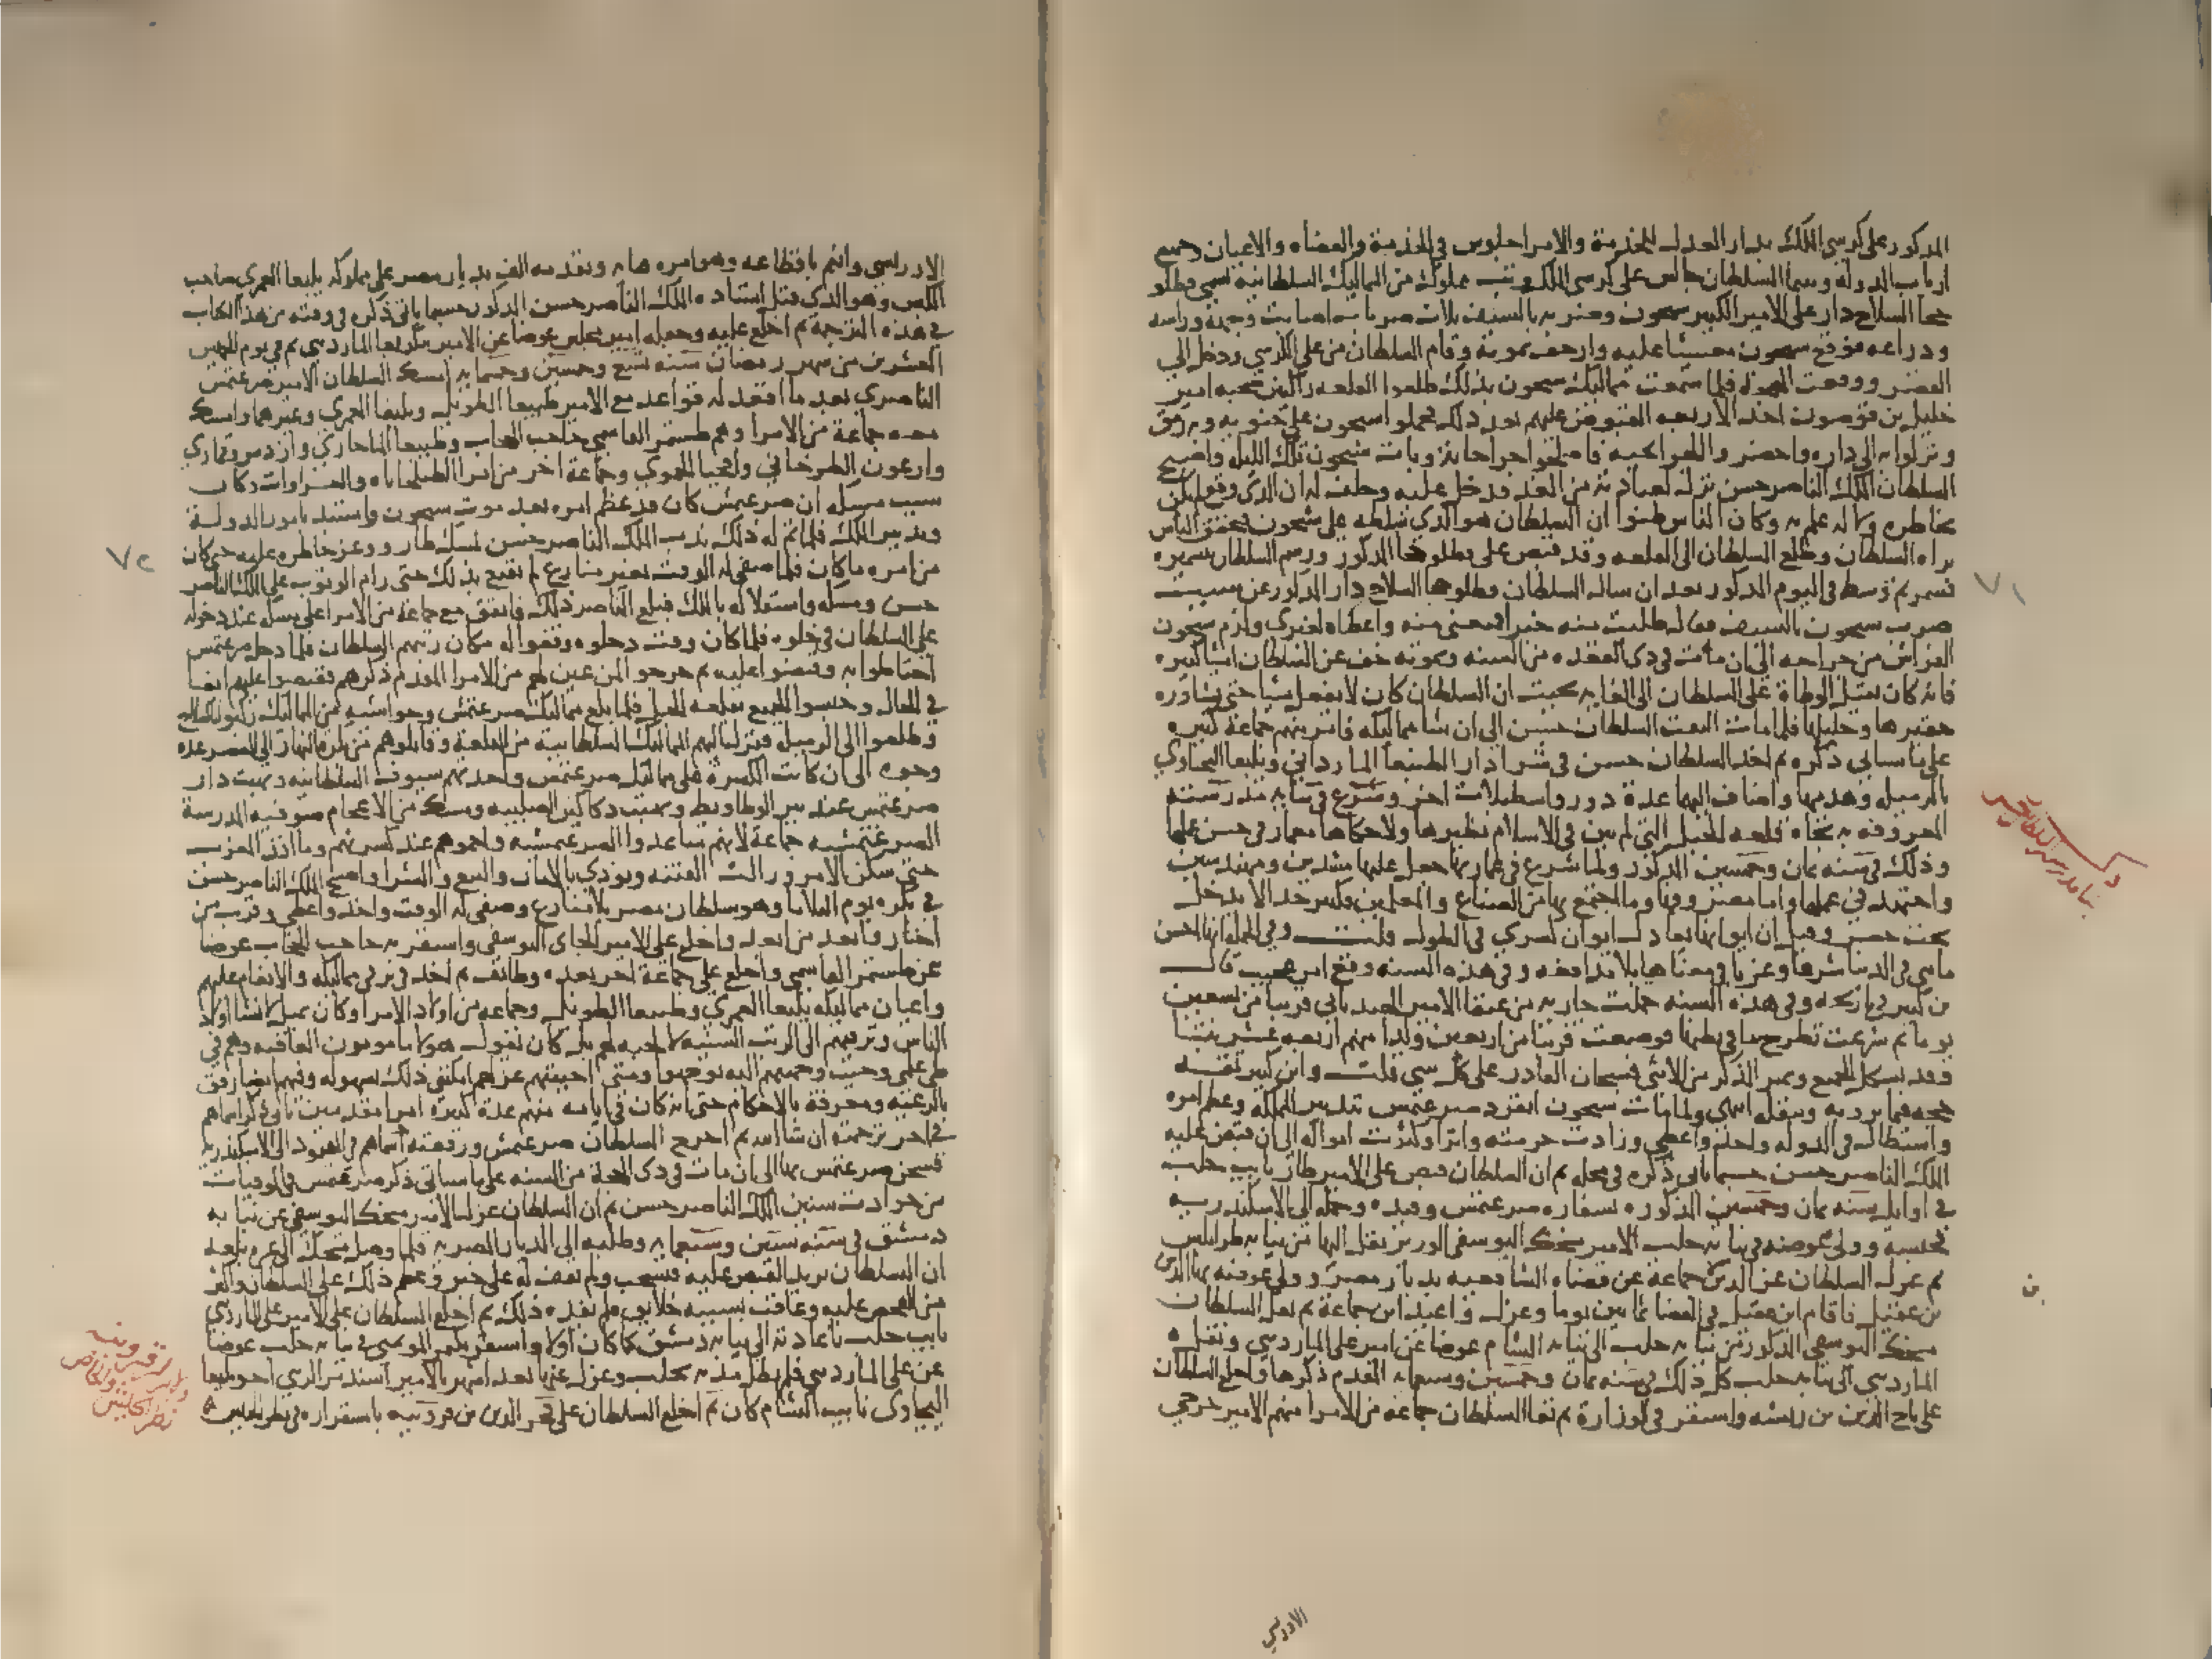 المذكور على كرسي الملك بدار العدل للخدمة والامرا جلوس في الخدمة والقضاه والاعيان وجميع
ارباب الدولة وبينما السلطان جالس على كرسي الملك وثب مملوك من المماليك السلطانية يسمى قطلو
خجا السلاح دار على الامير الكبير شيخون وضربه بالسيف ثلاث ضربات اصابت وجهه وراسه
ودراعه فوقع شيخون مغشيا عليه وارجف بموته وقام السلطان من على الكرسي ودخل الى
القصر ووقعت الهجة فلما سمعت مماليك شيخون بذلك طلعوا القلعه راكبين صحبه امير
خليل بن قوصون احد الاربعه المفوض عليهم بعد ذلك فحملوا شيخون على جنويه وبه رمق
ونزلوا به الى داره واحضروا له الجراحيه فاصلحوا جراحاته وباتت شيخون تلك الليله واصبح
السلطان الملك الناصر حسن نزل لعيادته من الغد فدخل عليه وحلف له ان الذي وقع لم يكن
بخاطره ولا له علم به وكان الناس ظنوا ان السلطان هو الذي سلطه على شيخون فتحقق الناس
براه السلطان وطلع السلطان الى القلعه وقد قبض على قطلو خجا المذكور ورسم السلطان بتسميره
فسمر ثم وسط في اليوم المذكور بعد ان ساله السلطان قطلو خجا السلاح دار المذكور عن سبب
ضرب شيخون بالسيف فقال طلبت منه خبزا فمنعني منه واعطاه لغيري ولزم شيخون
الفراش من جراحه الى ان مات في ذي القعده من السنه وبموته خف عن السلطان اشيا كثيره
فانه كان ثقيل الوطاة على السلطان الى الغايه بحيث ان السلطان كان لا يفعل شيا حتى يشاوره
حقيرها وجليلها فلما مات التفت السلطان حسن الى ان شا مماليكه فامر منهم جماعة كثيره
على ما سياتي ذكره ثم اخذ السلطان حسن في شرا دار الطنبغا المارداني ويلبغا اليحياوي
بالرميله وهدمها واضاف اليها عدة دور واسطبلات اخر وشرع في بنايه مدرسته
المعروفه به تجاه قلعه الجبل التي لم يبن في الاسلام نظيرها ولا حكاها معمار في حسن عملها
وذلك في سنه ثمان وخمسين المذكور ولما شرع في عمارتها جعل عليها مشدين ومهندسين
واجتهد في عملها
مثلها في الدنيا شرقا وغربا في معناها بلا مدافعه وفي هذه السنه وقع امر عجيب قال
بن كثير في تاريخه وفي هذه السنه حملت جاريه من عتقا الامير الهيدباني قريبا من تسعين
يوما ثم شرعت تطرح ما في بطنها فوضعت قريبا من اربعين ولدا منهم اربعه عشر بنتا
وقد تشكل الجميع وتميز الذكر من الانثى فسبحان القادر على كل شي قلت وابن كثير ثقه
حجه فيما يرويه وينقله انتهى ولما مات شيخون انفرد صرغتمش بتدبير المملكة وعظم امره
واستطال في الدوله واخذ واعطى وزادت حرمته واثرا وكثرت امواله الى ان قبض عليه
الملك الناصر حسن حسبما ياتي ذكره في محله ثم ان السلطان قبض على الامير طاز نايب حلب
في اوايل سنه ثمان وخمسين المذكوره بسفاره صرغتمش وقيده وحمله الى الاسكندريه
فحبسه وولى عوضه في نيابه حلب الامير منجك اليوسفي الوزير نقل اليها من نيابه طرابلس
ثم عزل السلطان عز الدين جماعة عن قضاه الشافعيه بديار مصر وولى عوضه بها الدين
بن عقيل فاقام ابن عقيل في القضا ثمانين يوما وعزل واعيد ابن جماعة ثم نقل السلطان
منجك اليوسفي المذكور من نيابه حلب الى نيابه الشام عوضا عن امير على المارديني ونقل
المارديني الى نيابه حلب كل ذلك في سنه ثمان وخمسين وسبعمايه المقدم ذكرها وخلع السلطان
على تاج الدين بن ريشه واستقر في الوزارة ثم نفا السلطان جماعة من الامرا منهم الامير جرجي
٧١
ذكر
بنا مدرسه السلطان حسن
الادريسي
الادريسي وانعم باقطاعه وهو امره مايه وتقدمه الف بديار مصر على مملوكه يلبغا العمري صاحب
الكبش وهو الذي قتل استاده الملك الناصر حسن المذكور حسبما ياتي ذكره في وقته من هذا الكتاب
في هذه الترجمة ثم اخلع عليه وجعله امير مجلس عوضا عن الامير تنكربغا المارديني ثم في يوم الخميس
العشرين من شهر رمضان سنه تسع وخمسين وسبعمايه امسك السلطان الامير صرغتمش
الناصري بعد ما اقعد له قواعد مع الامير طيبغا الطويل ويلبغا العمري وغيرهما وامسك
معه جماعة من الامرا وهم طشتمر القاسمي حاجب الحجاب وطيبغا الماجاري وازدمر وقماري
وارغون الطرخاني واقجبا الحموي وجماعة اخر من امرا الطبلخاناه والعشراوات وكان
سبب مسكه ان صرغتمش كان قد عظم امره بعد موت شيخون واستبد بامور الدولة
وتدبير الملك فلما تم له ذلك ندب الملك الناصر حسن لمسك طاز ووغر خاطره عليه حتى كان
من امره ما كان فلما صفى له الوقت بغير منازع لم يقنع بذلك حتى رام الوثوب على الملك الناصر
حسن ومسكه واستقلاله بالملك فبلغ الناصر ذلك فاتفق مع جماعة من الامرا على مسكه عند دخوله
على السلطان في خلوه فلما كان وقت دخوله وقفوا له مكان رتبهم السلطان فلما دخل صرغتمش
احتاطوا به وقبضوا عليه ثم خرجوا لمن عين لهم من الامرا المقدم ذكرهم فقبضوا عليهم ايضا
في الحال وحبسوا الجميع بقلعه الجبل فلما بلغ مماليك صرغتمش وحواشيه من المماليك ركبوا بالسلاح
وطلعوا الى الرميله فنزل اليهم المماليك السلطانيه من القلعة وقاتلوهم من بكره النهار الى العصر عده
وجوه الى ان كانت الكسرة على مماليك صرغتمش واخذتهم سيوف السلطانيه ونهبت دار
صرغتمش عند بير الوطاويط ونهبت دكاكين الصليبه ومسك من الاعجام صوفيه المدرسة
الصرغتمشيه جماعة لانهم ساعدوا الصرغتمشيه واحموهم عند كسرتهم وما اذن المغرب
حتى سكن الامر وزالت الفتنه ونودي بالامان والبيع والشرا واصبح الملك الناصر حسن
في بكره يوم الثلاثا وهو سلطان مصر بلا منازع وصفى له الوقت واخذ واعطى وقرب من
اختار وابعد من ابعد واخلع على الامير الجاي اليوسفي واستقر به حاجب الحجاب عوضا
عن طشتمر القاسمي واخلع على جماعة اخر بعده وظايف ثم اخذ في ترقي مماليكه والانعام عليهم
واعيان مماليكه يلبغا العمري وطيبغا الطويل وجماعه من اولاد الامرا وكان يميل لانشا اولاد
الناس وترقيهم الى الرتب السنيه لا لحبه لهم بل كان يقول هولا مامونون العاقبه وهم في
طي علمي وحيث وجهتهم اليه توجهوا ومتى احببت عزلهم امكنني ذلك بسهوله وفيهم ايضا رفق
بالرعيه ومعرفة بالاحكام حتى انه كان في ايامه منهم عدة كثيرة امرا مقدمين ياتي ذكر اسماهم
في اخر ترجمته ان شا الله ثم اخرج السلطان صرغتمش ورفقته امسكهم في القيود الى الاسكندريه
فسجن صرغتمش بها الى ان مات في ذي الحجة من السنه على ما سياتي ذكر صرغتمش في الوفيات
من حوادث سنين الملك الناصر حسن ثم ان السلطان عزل الامير منجك اليوسفي عن نيابه
دمشق في سنه ستين وسبعمايه وطلبه الى الديار المصريه فلما وصل منجك الى غزه بلغه
ان السلطان يريد القبض عليه فتسحب ولم يوقف له على خبر وعظم ذلك على السلطان واكثر
من الفحص عليه وعاقب بسببه خلايق فلم يفده ذلك ثم اخلع السلطان على الامير على المارديني
نايب حلب باعادته الى نيابه دمشق كما كان اولا واستقر بكتمر المومني في نيابه حلب عوضا
عن على المارديني فلم تطل مدته بحلب وعزل عنها بعد اشهر بالامير اسندمر الزيني اخو يلبغا
اليحياوي نايب الشام كان ثم اخلع السلطان على فخر الدين بن قرونيه باستقراره في نظر الجيش
٧٢
نظر الجيش والخاص